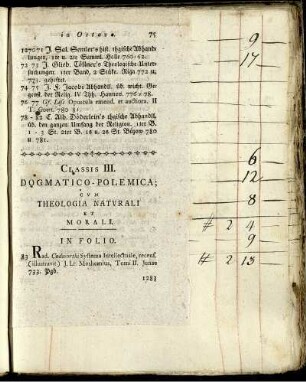 in Octavo. 75
70 71 J. Sal. Semler's hist. theologische Abhand-
lungen, 1te u. 2te Samml. Halle 760-62.
72 73 J. Gottl. Töllner's Theologische Unter-
suchungen. 1ter Band, 2 Stücke. Riga 772 u.
773. geheftet.
74 75 J. F. Jacobi Abhandl. üb. wicht. Ge
genst. der Relig. IV Thle. Hannov. 776 u. 78.
76 77 Opuscula emend. et auctiora. II
Tom. 780 81.
78 - 82 Döderlein's theologische Abhandl.
üb. den ganzen Umfang der Religion. 1ter B.
1 - 3 St. 2ter B. 1s u. 2s St. 780
u 781.
CLASSIS III.
DOGMATICO-POLEMICA;
CVM
THEOLOGIA NATVRALI
ET
MORALI.
IN FOLIO.
83 Rad. Cudworthi Systema Intellectuale, recens.
(illustravit) J. L. Moshemius, Tomi II. Jenae
733. Pgb.
1283
9
17
6
12
8
# 2 4
9
# 2 13